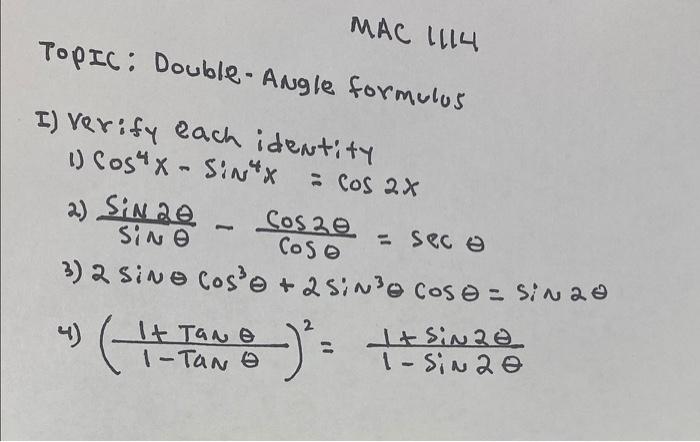 MAC 1114
Topic: Double-Angle formulas
I) Verify each identity
1) Cos⁴x - Sin⁴x = Cos 2x
2) Sin 2θ / Sin θ - Cos 2θ / Cos θ = sec θ
3) 2 Sin θ Cos³θ + 2 Sin³θ Cos θ = Sin 2θ
4) (1 + Tan θ / 1 - Tan θ)² = 1 + Sin 2θ / 1 - Sin 2θ